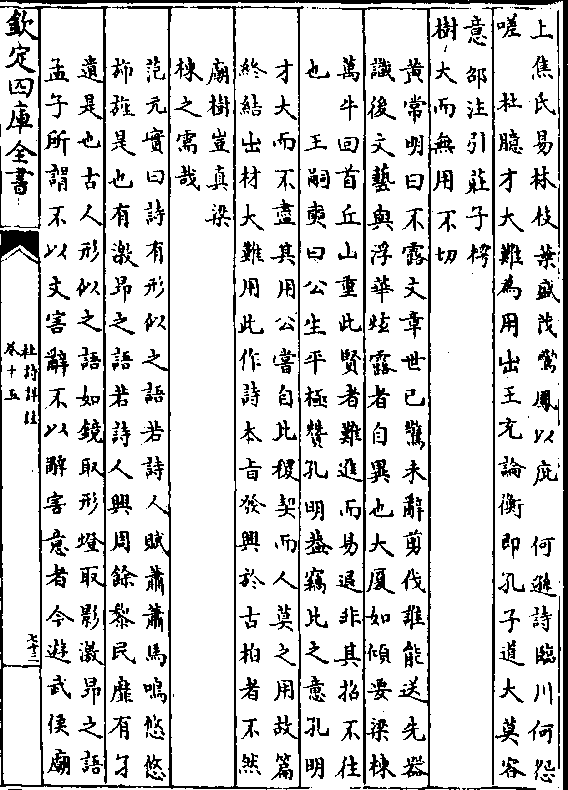 上焦氏易林枝葉盛茂鸞鳳以庇　何遜詩臨川何怨
嗟　杜臆才大難為用出王充論衡即孔子道大莫容
意邵注引莊子樗
樹大而無用不切
黄常明曰不露文章世已驚未辭剪伐誰能送先器
識後文藝與浮華炫露者自異也大厦如傾要梁棟
萬牛回首丘山重此賢者難進而易退非其招不往
也　王嗣奭曰公生平極贊孔明葢竊比之意孔明
才大而不盡其用公嘗自比稷契而人莫之用故篇
終結出材大難用此作詩本旨發興於古柏者不然
廟樹豈真梁
棟之需哉
范元實曰詩有形似之語若詩人賦蕭蕭馬鳴悠悠
斾旌是也有激昂之語若詩人興周餘黎民靡有孑
遺是也古人形似之語如鏡取形燈取影激昂之語
孟子所謂不以文害辭不以辭害意者今遊武侯廟
欽定四庫全書
杜詩詳註
卷十五
七十二